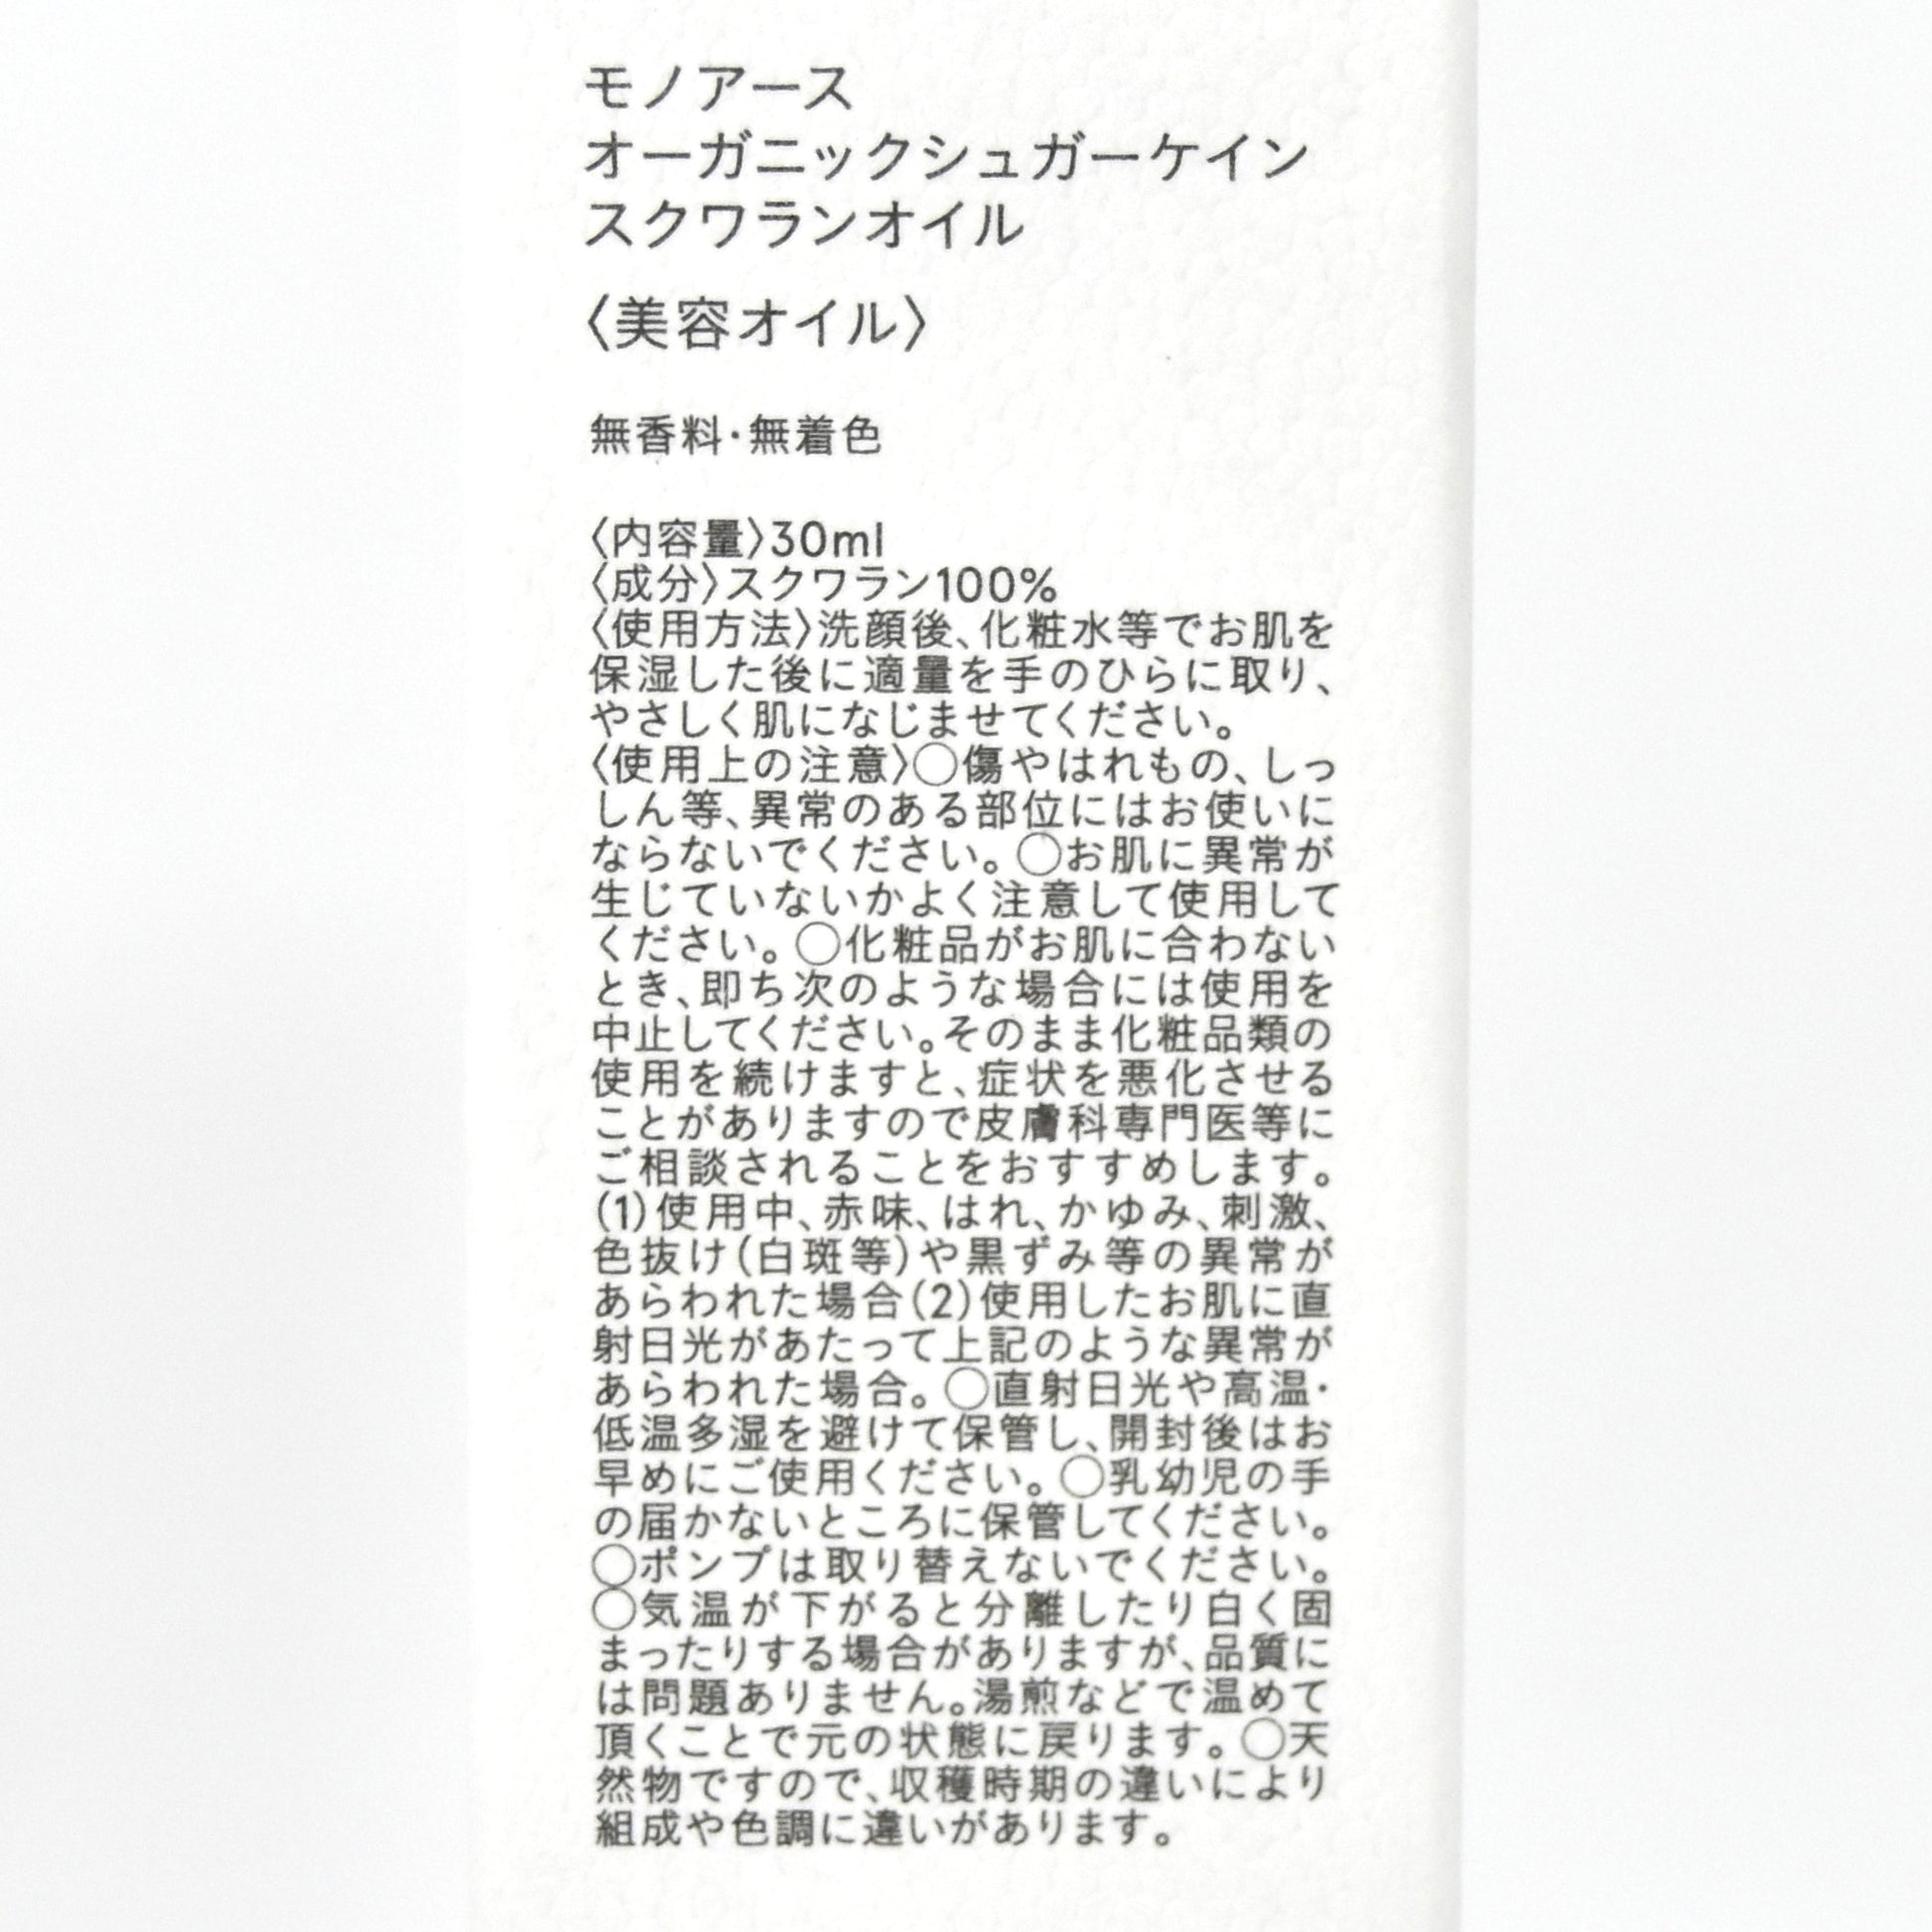 モノアース
オーガニックシュガーケイン
スクワランオイル
〈美容オイル〉
無香料・無着色
〈内容量〉30ml
〈成分〉スクワラン100%
〈使用方法〉洗顔後、化粧水等でお肌を
保湿した後に適量を手のひらに取り、
やさしく肌になじませてください。
〈使用上の注意〉◯傷やはれもの、しっ
しん等、異常のある部位にはお使いに
ならないでください。◯お肌に異常が
生じていないかよく注意して使用して
ください。◯化粧品がお肌に合わない
とき、即ち次のような場合には使用を
中止してください。そのまま化粧品類の
使用を続けますと、症状を悪化させる
ことがありますので皮膚科専門医等に
ご相談されることをおすすめします。
(1)使用中、赤味、はれ、かゆみ、刺激、
色抜け(白斑等)や黒ずみ等の異常が
あらわれた場合(2)使用したお肌に直
射日光があたって上記のような異常が
あらわれた場合。◯直射日光や高温・
低温多湿を避けて保管し、開封後はお
早めにご使用ください。◯乳幼児の手
の届かないところに保管してください。
◯ポンプは取り替えないでください。
◯気温が下がると分離したり白く固
まったりする場合がありますが、品質に
は問題ありません。湯煎などで温めて
頂くことで元の状態に戻ります。◯天
然物ですので、収穫時期の違いにより
組成や色調に違いがあります。